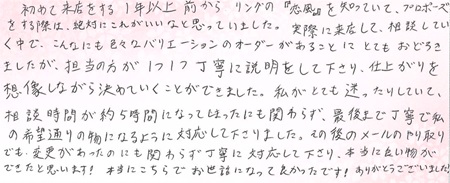 初めて来店をする1年以上前からリングの『恋風』を知っていて、プロポーズ
をする際は、絶対にこれがいいなと思っていました。実際に来店して、相談してい
く中で、こんなにも色々なバリエーションのオーダーがあることにとてもおどろき
ましたが、担当の方が1つ1つ丁寧に説明をして下さり、仕上がりを
想像しながら決めていくことができました。私がとても迷ったりしていて、
相談時間が約5時間になってしまったにも関わらず、最後まで丁寧で私
の希望通りの物になるように対応して下さりました。その後のメールのやり取り
でも、変更があったのにも関わらず丁寧に対応して下さり、本当に良い物が
できたと思います！本当にこちらでお世話になって良かったです！ありがとうございました！